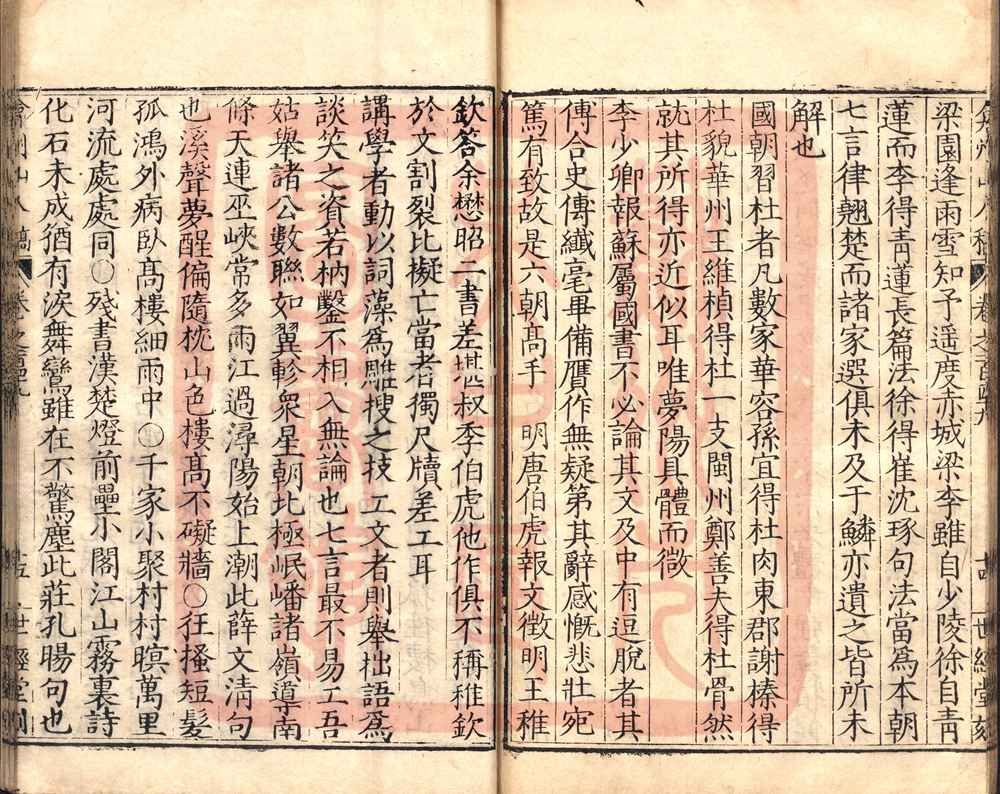 弇州山人稿 卷之一百四九 十四 世經堂刻
梁園逢雨雪知予遥度赤城梁李雖自少陵徐自青
蓮而李得青蓮長篇法徐得崔沈琢句法當爲本朝
七言律翹楚而諸家選俱未及于鱗亦遺之皆所未
解也
國朝習杜者凡數家華容孫宜得杜肉東郡謝榛得
杜貌華州王維楨得杜一支閩州鄭善夫得杜骨然
就其所得亦近似耳唯夢陽具體而微
李少卿報蘇屬國書不必論其文及中有逗脫者其
傳合史傳纖毫畢備贋作無疑第其辭感慨悲壯宛
篤有致故是六朝高手 明唐伯虎報文徵明王稚
欽答余懋昭二書差堪叔季伯虎他作俱不稱稚欽
於文割裂比擬亡當者獨尺牘差工耳
講學者動以詞藻爲雕搜之技工文者則舉拙語爲
談笑之資若枘鑿不相入無論也七言最不易工吾
姑舉諸公數聯如翼軫衆星朝北極岷嶓諸嶺導南
條天連巫峽常多雨江過潯陽始上潮此薛文清句
也溪聲夢醒偏隨枕山色樓高不礙牆〇狂搔短髮
孤鴻外病臥高樓細雨中〇千家小聚村村暝萬里
河流處處同〇殘書漢楚燈前壘小閣江山霧裏詩
化石未成猶有淚舞鸞雖在不驚塵此莊孔暘句也
弇州山人稿 卷之一百四九 十五 世經堂刻